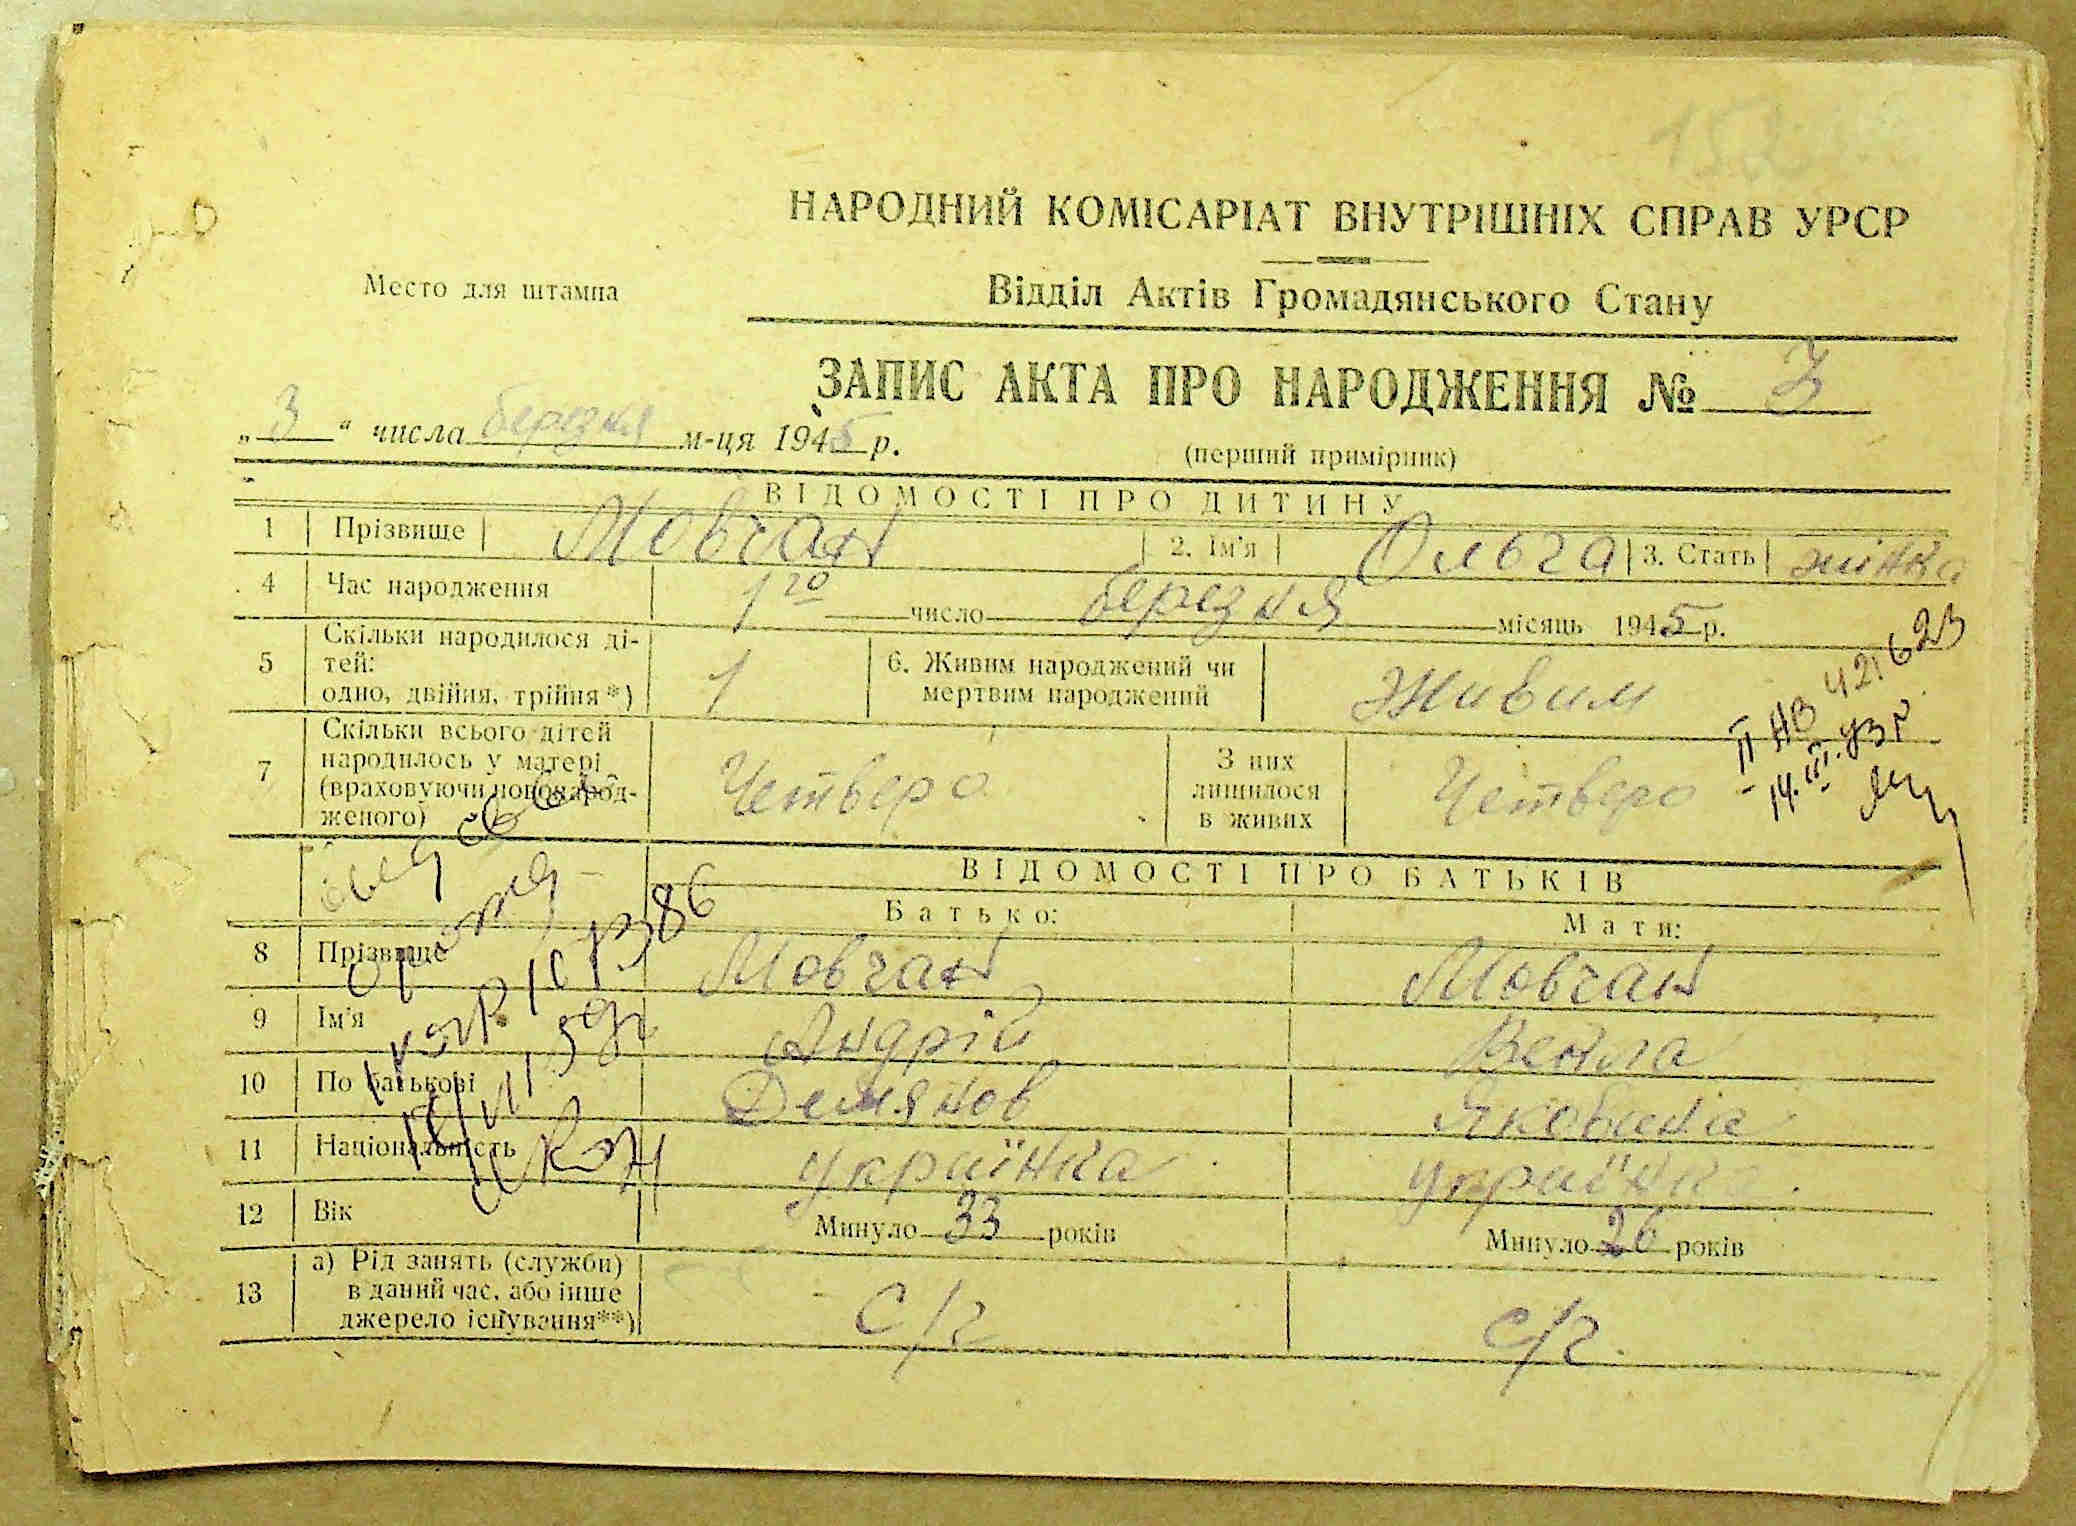 НАРОДНИЙ КОМІСАРІАТ ВНУТРІШНІХ СПРАВ УРСР
Место для штампа
Відділ Актів Громадянського Стану
ЗАПИС АКТА ПРО НАРОДЖЕННЯ № 3
„3“ числа березня м-ця 1945 р.
(перший примірник)
ВІДОМОСТІ ПРО ДИТИНУ
1 Прізвище Мовчан 2. Ім'я Ольга 3. Стать жінка
4 Час народження 1го число березня місяць 1945 р.
5 Скільки народилося ді-
тей:
одно, двійня, трійня*) 1 6. Живим народжений чи
мертвим народжений Живим
7 Скільки всього дітей
народилось у матері
(враховуючи новонарод-
женого) Четверо З них
лишилося
в живих Четверо
II НВ 421623
14.III.73 г.
ВІДОМОСТІ ПРО БАТЬКІВ
Батько: Мати:
8 Прізвище Мовчан Мовчан
9 Ім'я Андрій Векла
10 По батькові Демянов Якобина
11 Національність українка українка
12 Вік Минуло 33 років Минуло 26 років
13 а) Рід занять (служби)
в даний час, або інше
джерело існування**) с/г с/г